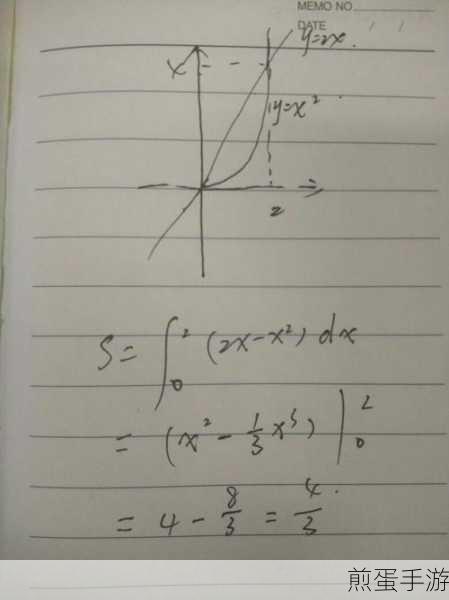 MEMO NO.
DATE / /
y=2x.
y=x²
2
S = ∫₀² (2x-x²) dx
= (x² - 1/3 x³) |₀²
= 4 - 8/3 = 4/3.
煎蛋手游